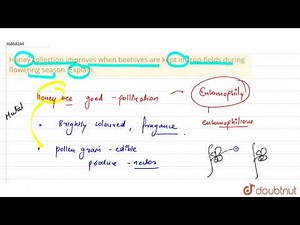 Honey collection improves when beehives are kept in crop-fields during
flowering season. Explain.
honey bee good - pollination
Entomophily
entomophilious
Brightly coloured, fragance
pollen grain - edible
produce - nector
doubtnut